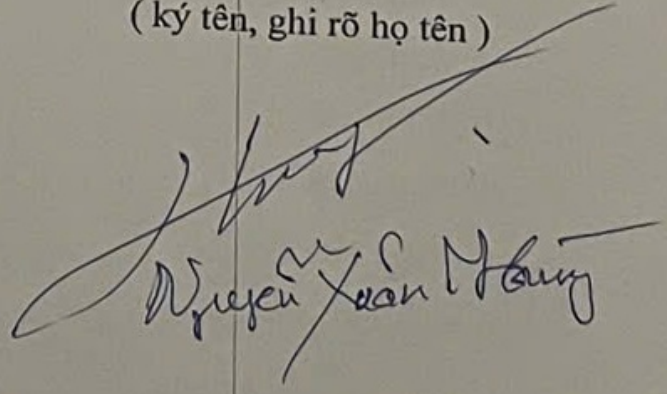 ( ký tên, ghi rõ họ tên )
Nguyễn Xuân Hùng